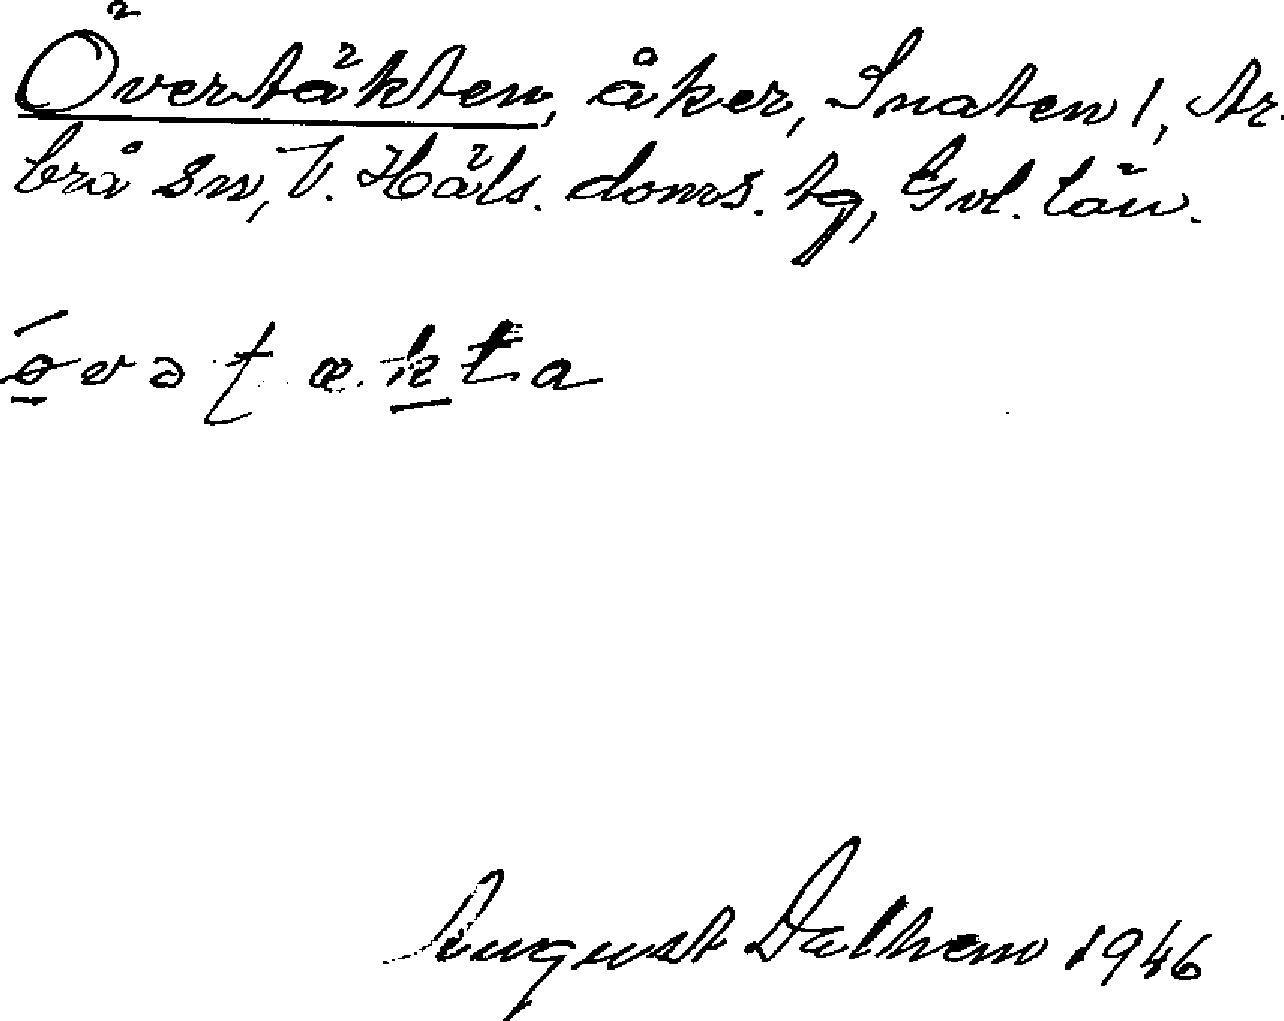 Övertäkten, åker, Snaten 1, Ar-
brå sn, V. Häls. doms. tg, Gvl. län.
øvətækta
August Dalhem 1946